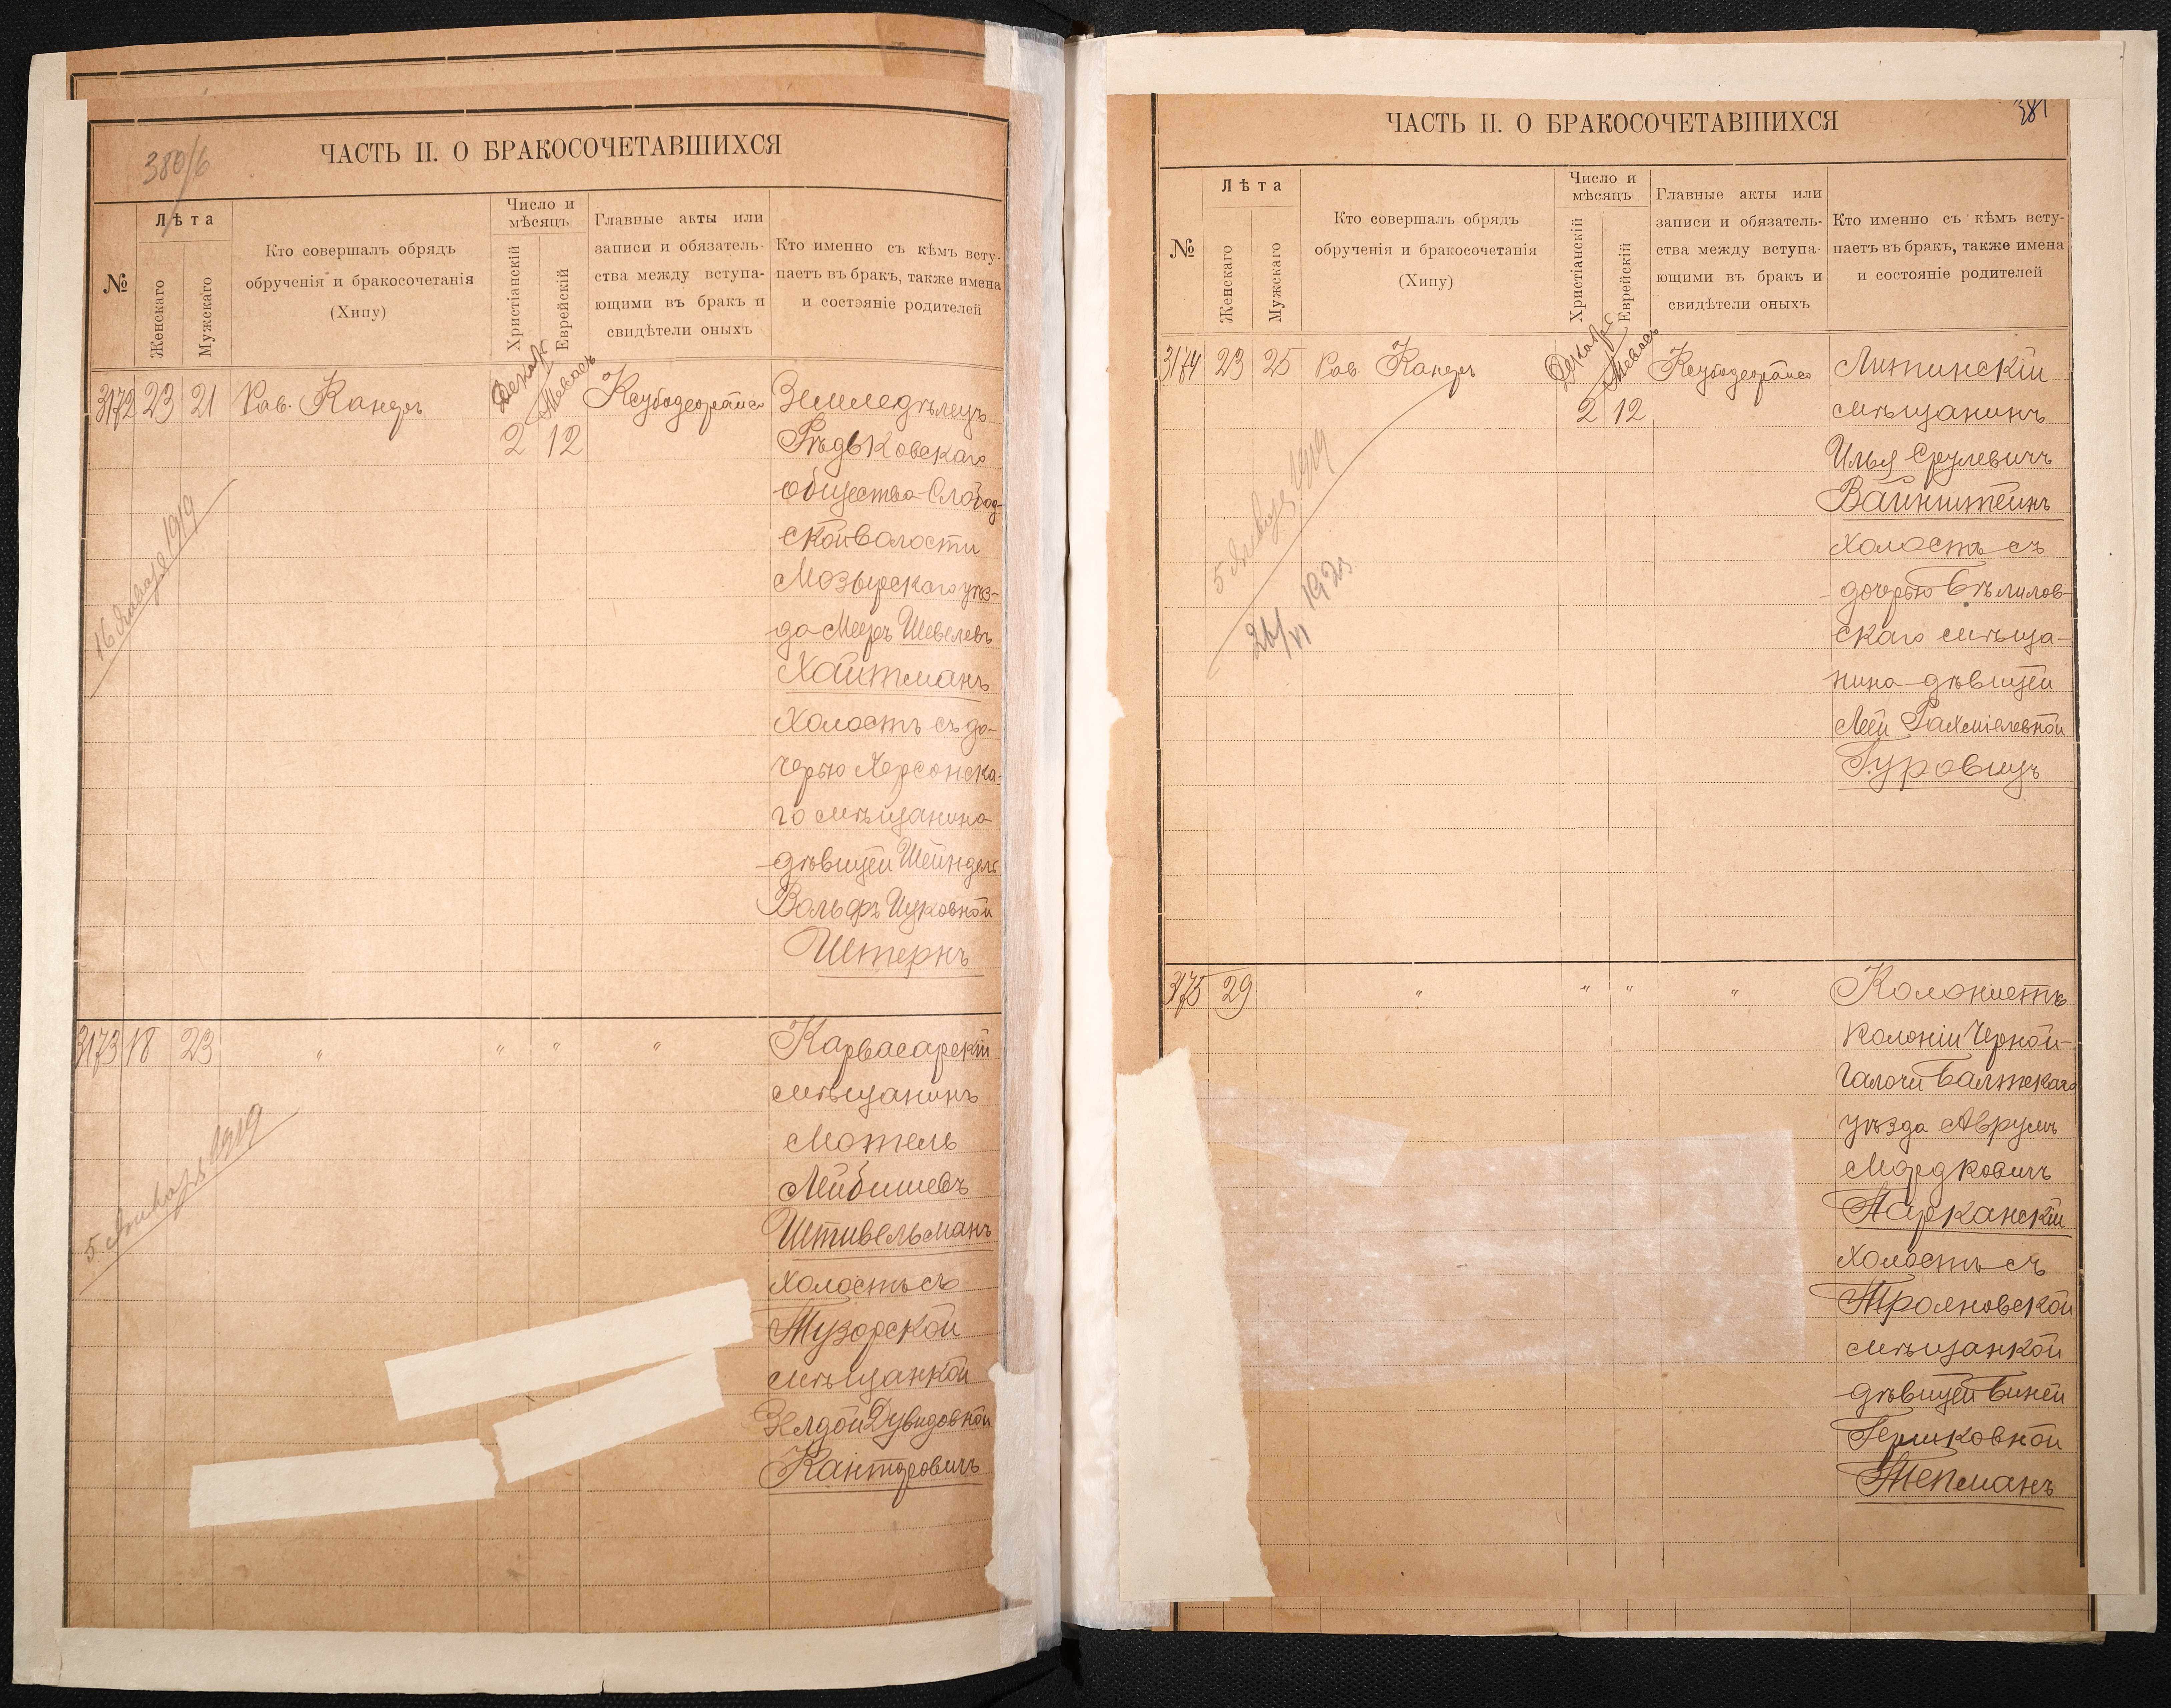 380/б
ЧАСТЬ II. О БРАКОСОЧЕТАВШИХСЯ
№
Лѣта
Женскаго
Мужскаго
Кто совершалъ обрядъ
обрученія и бракосочетанія
(Хипу)
Число и
мѣсяцъ
Христіанскій
Еврейскій
Главные акты или
записи и обязатель-
ства между вступа-
ющими въ бракъ и
свидѣтели оныхъ
Кто именно съ кѣмъ всту-
паетъ въ бракъ, также имена
и состояніе родителей
3172 23 21 Рав. Канеръ
2 12
Земледѣлецъ
Рѣдьковскаго
общества Слобод-
ской волости
Мозырскаго уѣз-
да Мееръ Шевелевъ
Хайтманъ
холостъ съ до-
черью Херсонска-
го мѣщанина
дѣвицей Шейндель
Вольфъ Ицковной
Штернъ
16 Января 1919
3173 18 23 " " " "
Карвасарскій
мѣщанинъ
Мотель
Лейбишевъ
Штивельманъ
холостъ съ
мѣщанкой
Зелдой Дувидовной
Канторовичъ
5 Январь 1919
381
ЧАСТЬ II. О БРАКОСОЧЕТАВШИХСЯ
№
Лѣта
Женскаго
Мужскаго
Кто совершалъ обрядъ
обрученія и бракосочетанія
(Хипу)
Число и
мѣсяцъ
Христіанскій
Еврейскій
Главные акты или
записи и обязатель-
ства между вступа-
ющими въ бракъ и
свидѣтели оныхъ
Кто именно съ кѣмъ всту-
паетъ въ бракъ, также имена
и состояніе родителей
3174 23 25 Рав. Канеръ
2 12
Литинскій
мѣщанинъ
Илья Срулевичъ
Вайнштейнъ
холостъ съ
дочерью Бѣлилов-
скаго мѣща-
нина дѣвицей
Леей Рахмielевной
Гуровицъ
5 Января 1919
26/VI 192
3175 29 " " " "
Колонистъ
колоніи Черной-
Галочи Балтскаго
уѣзда Аврумъ
Мордковичъ
Парканскій
холостъ съ
Трояновской
мѣщанкой
дѣвицей Биней
Гершковной
Тепманъ